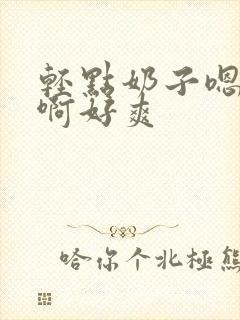 輕點奶子嗯
啊好爽
哈你个北極熊